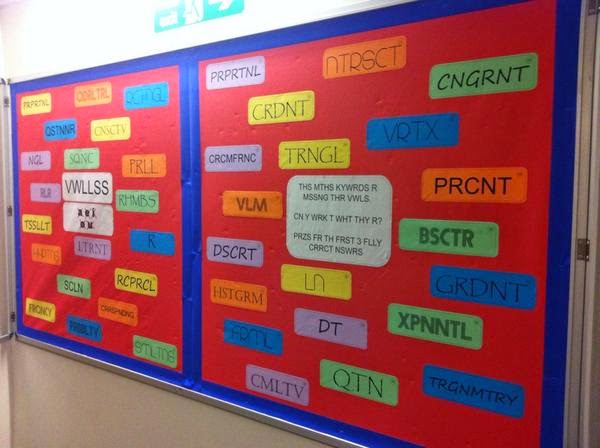 PRPRTNL
QDRLTRL
RCTNGL
QSTNNR
CNSCTV
NGL
SQNC
PRLL
RLR
VWLLSS
RHMBS
TSSLLT
LTRNT
R
SCLN
RCPRCL
FRQNCY
CRRSPNDNG
PRBBLTY
SMLTNS
PRPRTNL
NTRSCT
CNGRNT
CRDNT
VRTX
CRCMFRNC
TRNGL
PRCNT
VLM
THS MTHS KYWRDS R
MSSNG THR VWLS.
CN Y WRK T WHT THY R?
PRZS FR TH FRST 3 FLLY
CRRCT NSWRS
BSCTR
DSCRT
LN
GRDNT
HSTGRM
DT
XPNNTL
FRML
CMLTV
QTN
TRGNMTRY